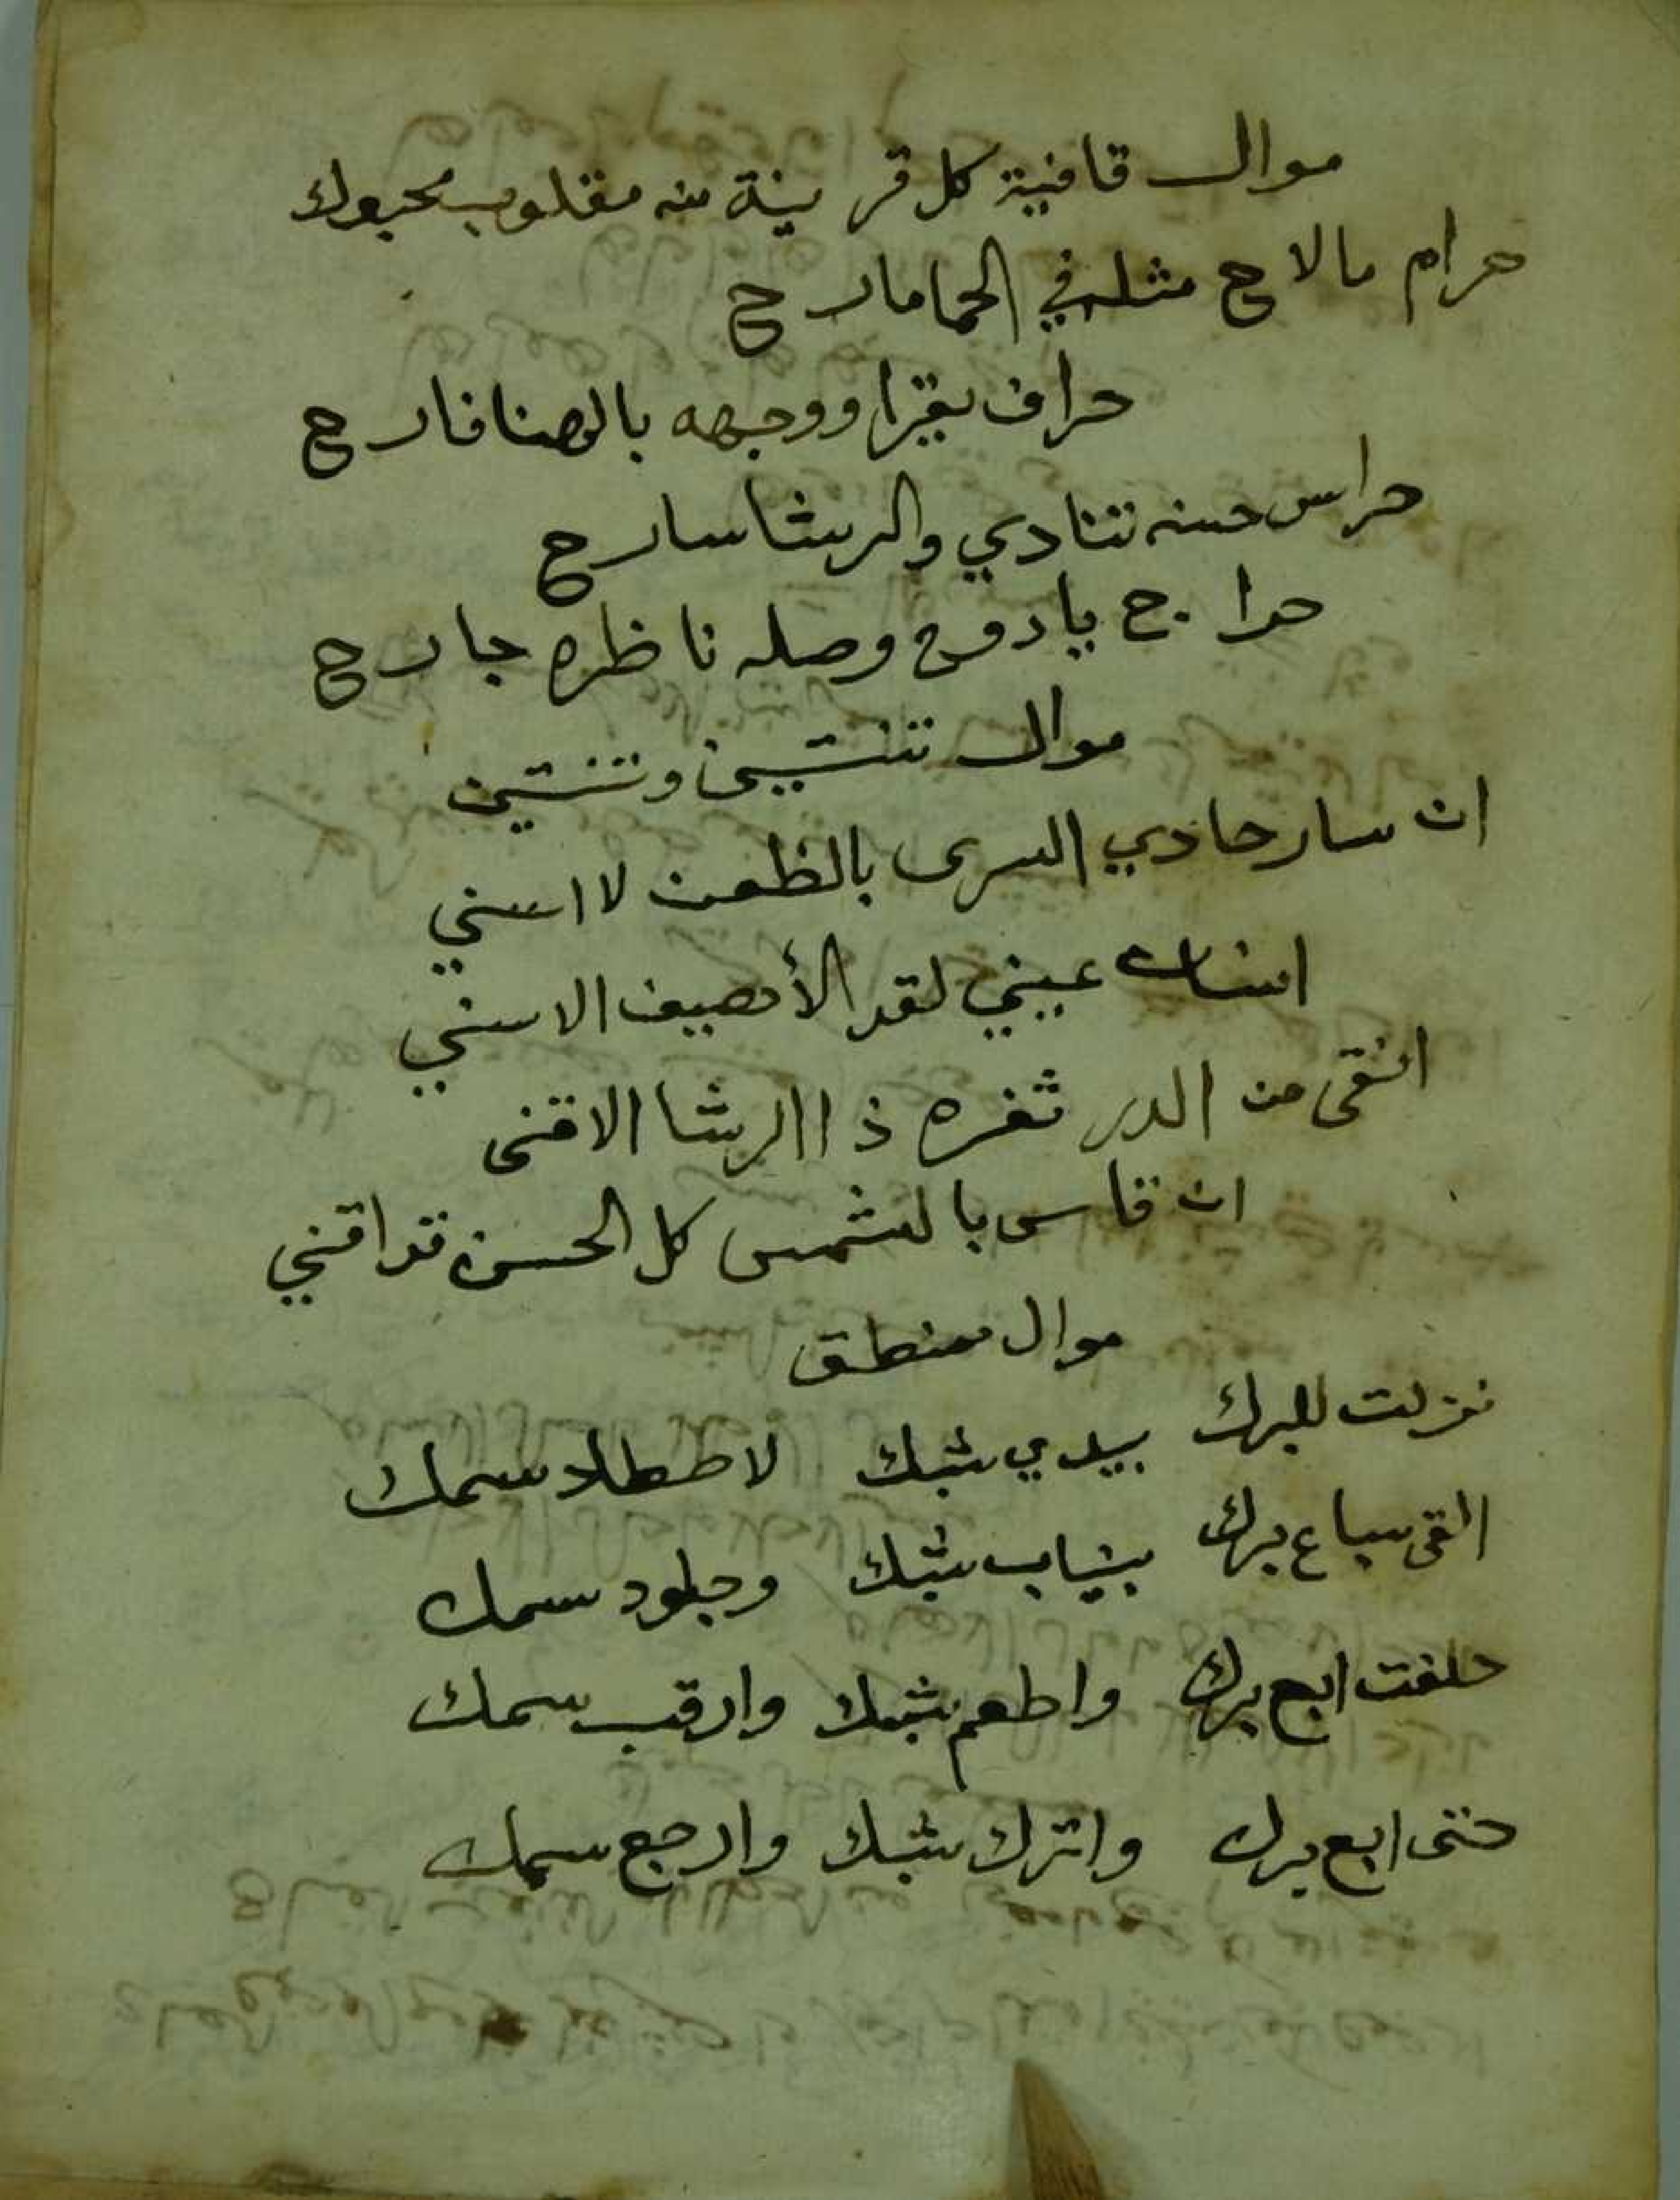 موال قافية كل قرينة منه مقلوب محبوك
حرام ما لاح مثله في الحما مارح
حراف يقرا ووجهه بالهنا فارح
حراس حسنه تنادي والرشا سارح
حراج يا دوح وصله ناظره جارح
موال
ان سار حادي السرى بالظعن لا اسني
انسان عيني لقد الأهيف الاسني
انقى من الدر ثغره ذا الرشا الاقنى
ان قاس بالشمس كل الحسن قد اقني
موال منطق
نزلت للبرك بيدي شبك لاصطاد سمك
القى سباع برك بنياب شبك وجلود سمك
حلفت ابع برك واطعم شبك وارقب سمك
حتى ابع برك واترك شبك وارجع سمك